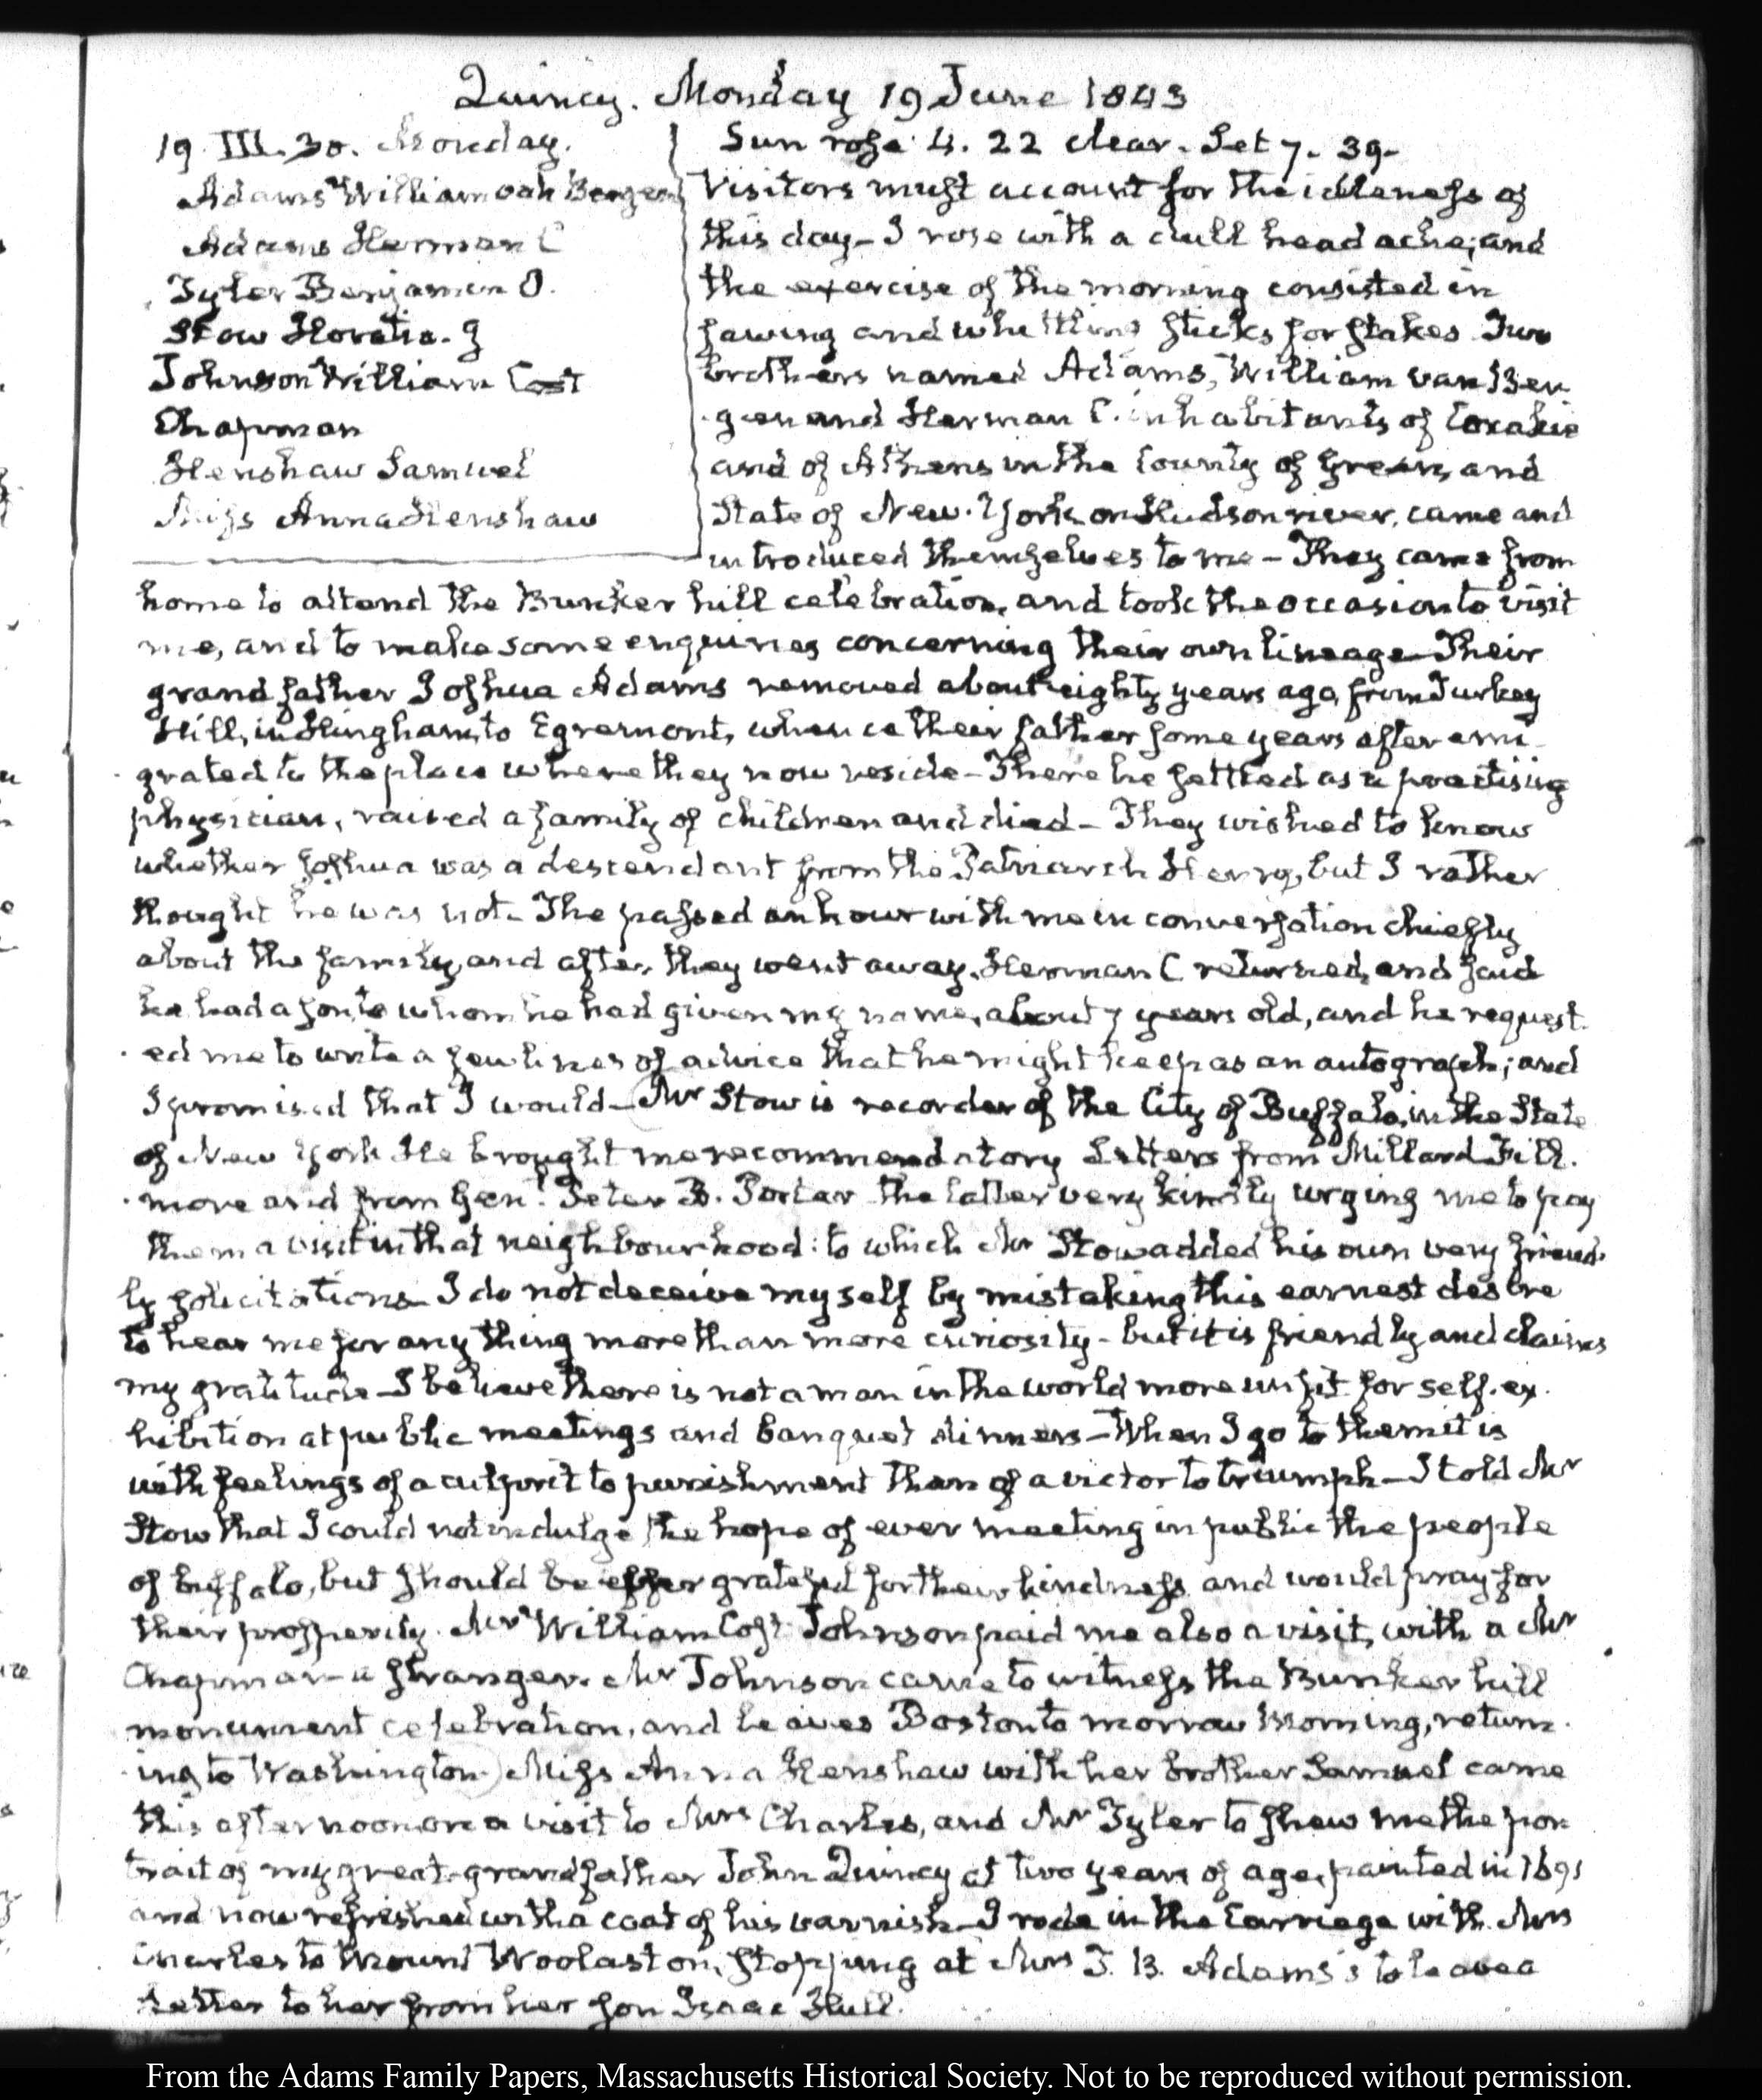 Quincy. Monday 19 June 1843
19. III. 30. Monday.
Adams William Van Bergen
Adams Herman C
Tyler Benjamin O.
Stow Horatio. J
Johnson William Cost
Chapman
Henshaw Samuel
Miss Anna Henshaw
Sun rose 4. 22 clear. Set 7. 39.
Visitors must account for the idleness of
this day_ I rose with a dull head ache; and
the exercise of the morning consisted in
sawing and whittling sticks for stakes. Two
brothers named Adams, William van Ber
gen and Herman C. inhabitants of Coxakie
and of Athens in the County of Green, and
State of New-York on Hudson river, came and
introduced themselves to me – They came from
home to attend the Bunker hill celebration, and took the occasion to visit
me, and to make some enquiries concerning their own lineage– Their
grandfather Joshua Adams removed about eighty years ago, from Turkey
Hill, in Hingham, to Egremont, whence their father some years after emi-
grated to the place where they now reside– There he settled as a practising
physician, raised a family of children and died – They wished to know
whether Joshua was a descendant from the Patriarch Henry, but I rather
thought he was not– The passed an hour with me in conversation chiefly
about the family, and after they went away, Herman C returned, and said
he had a son, to whom he had given my name, about 7 years old, and he request-
ed me to write a few lines of advice that he might keep as an autograph; and
I promised that I would– Mr Stow is recorder of the City of Buffalo, in the State
of New York He brought me recommendatory Letters from Millard Fill-
more and from Genl. Peter B. Porter the latter very kindly urging me to pay
them a visit in that neighbourhood: to which Mr Stow added his own very friend-
ly solicitations– I do not deceive myself by mistaking this earnest desire
to hear me for any thing more than mere curiosity – but it is friendly and claims
my gratitude– I believe there is not a man in the world more unfit for self-ex-
hibition at public meetings and banquet dinners– When I go to them it is
with feelings of a culprit to punishment than of a victor to triumph– I told Mr
Stow that I could not indulge the hope of ever meeting in public the people
of Buffalo, but should be ever grateful for their kindness and would pray for
their prosperity. Mr William Cost Johnson paid me also a visit, with a Mr
Chapman– a stranger. Mr Johnson came to witness the Bunker hill
monument celebration, and leaves Boston to morrow Morning, return-
ing to Washington. Miss Anna Henshaw with her brother Samuel came
this afternoon on a visit to Mrs Charles, and Mr Tyler to shew me the por-
trait of my great-grandfather John Quincy at two years of age, painted in 1691
and now refreshed with a coat of his varnish– I rode in the Carriage with Mrs
Charles to Mount Woolaston, stopping at Mrs T. B. Adams's to leave a
letter to her from her son Isaac Hull.
From the Adams Family Papers, Massachusetts Historical Society. Not to be reproduced without permission.